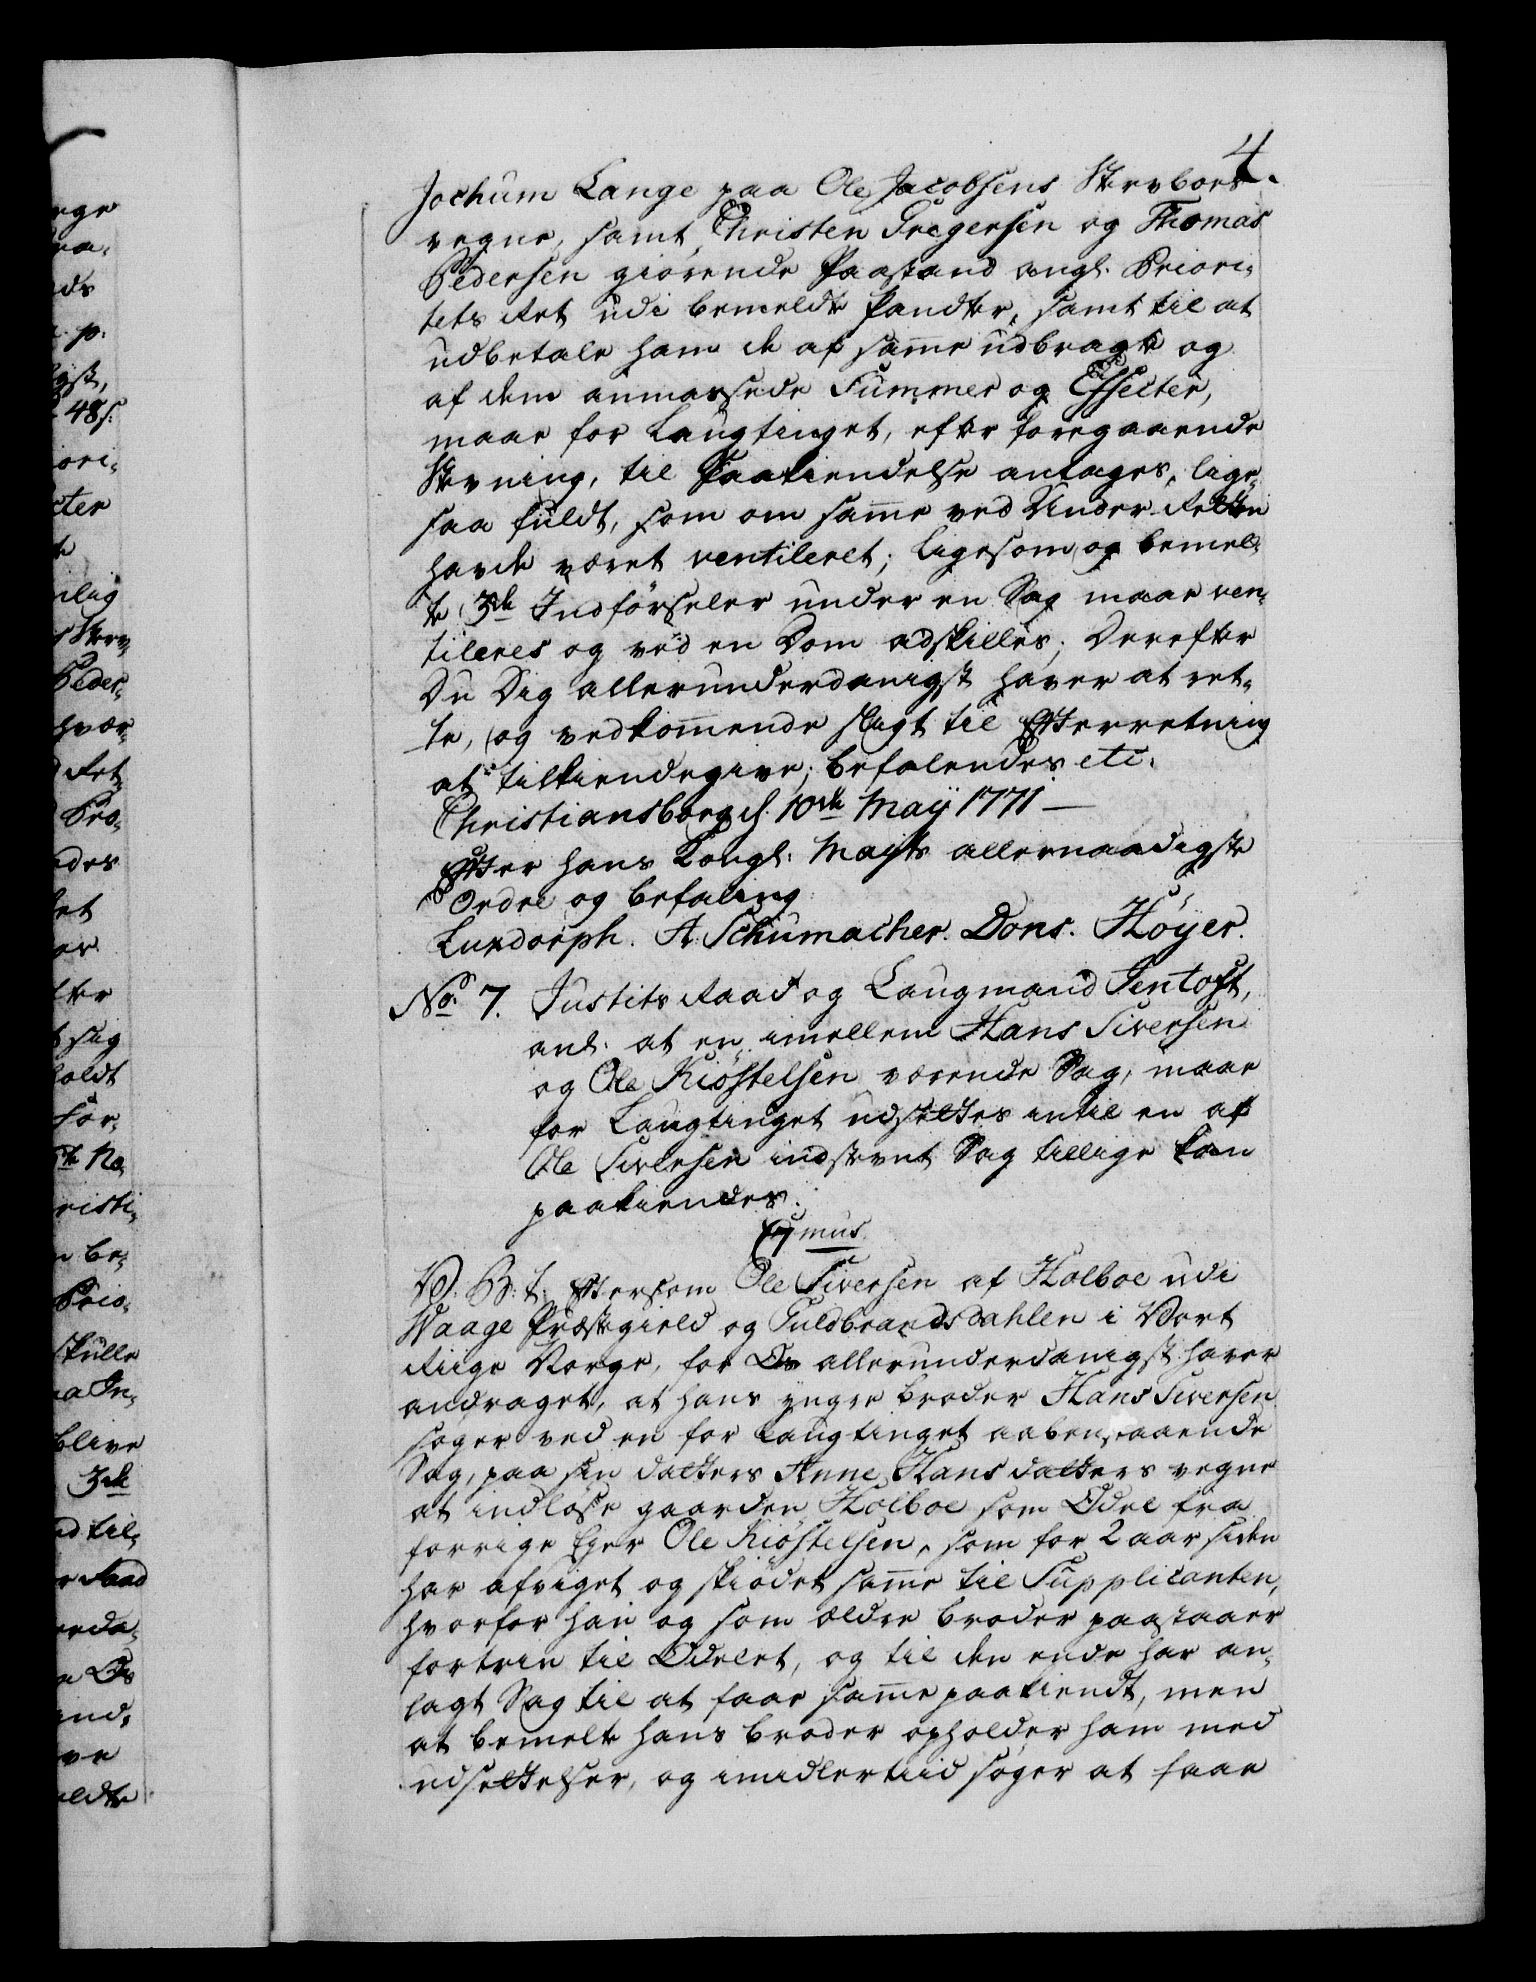 4.
Jochum Lange paa Ole Jacobsens Stervboes
vegne, samt Christen Gregersen og Thomas
Pedersen giörende Paastand angl. Priori-
tets Ret udi bemeldte Pandter, samt til at
udbetale ham de af samme udbragte og
af dem anmassede Summer og Effecter,
maae for Laugtinget, efter foregaaende
Stevning, til Paakiendelse antages, lige-
saa fuldt, som om samme ved Under-Retten
havde været ventileret; Ligesom og bemel-
te 3de Indförseler under en Sag maae ven-
tileres og ved en Dom adskilles; Derefter
Du Dig allerunderdanigst haver at ret-
te, og vedkommende sligt til Efterretning
at tilkiendegive; befalendes etc.
Christiansborg d. 10de Maÿ 1771
Efter Hans Kongl: Mayts allernaadigste
Ordre og befaling
Luxdorph. A: Schumacher. Dons. Höyer.
No. 7. Justits Raad og Laugmand Tentoft,
anl. at en imellem Hans Siversen
og Ole Kiöstelsen værende Sag, maae
for Laugtinget udsettes intil en af
Ole Siversen indstevnt Sag tillige kan
paakiendes.
C 7mus
V. G: t: Eftersom Ole Siversen af Holboe udi
Waage Præstegield og Guldbrandsdahlen i Vort
Riige Norge, for Os allerunderdanigst haver
andraget, at hans yngre broder Hans Siversen
söger ved en for Laugtinget aabenstaaende
Sag, paa sin datters Anne Hans datters vegne
at indlöse gaarden Holboe som Odel fra
forrige Eyer Ole Kiöstelsen, som for 2 aar siden
har afviget og skiödet samme til Supplicanten,
hvorfor han og som ældre broder paastaaer
fortrin til Odelet, og til den ende har an-
lagt Sag til at faae samme paakiendt, men
at bemelte hans broder opholder ham med
udsettelser, og imidlertiid söger at faae